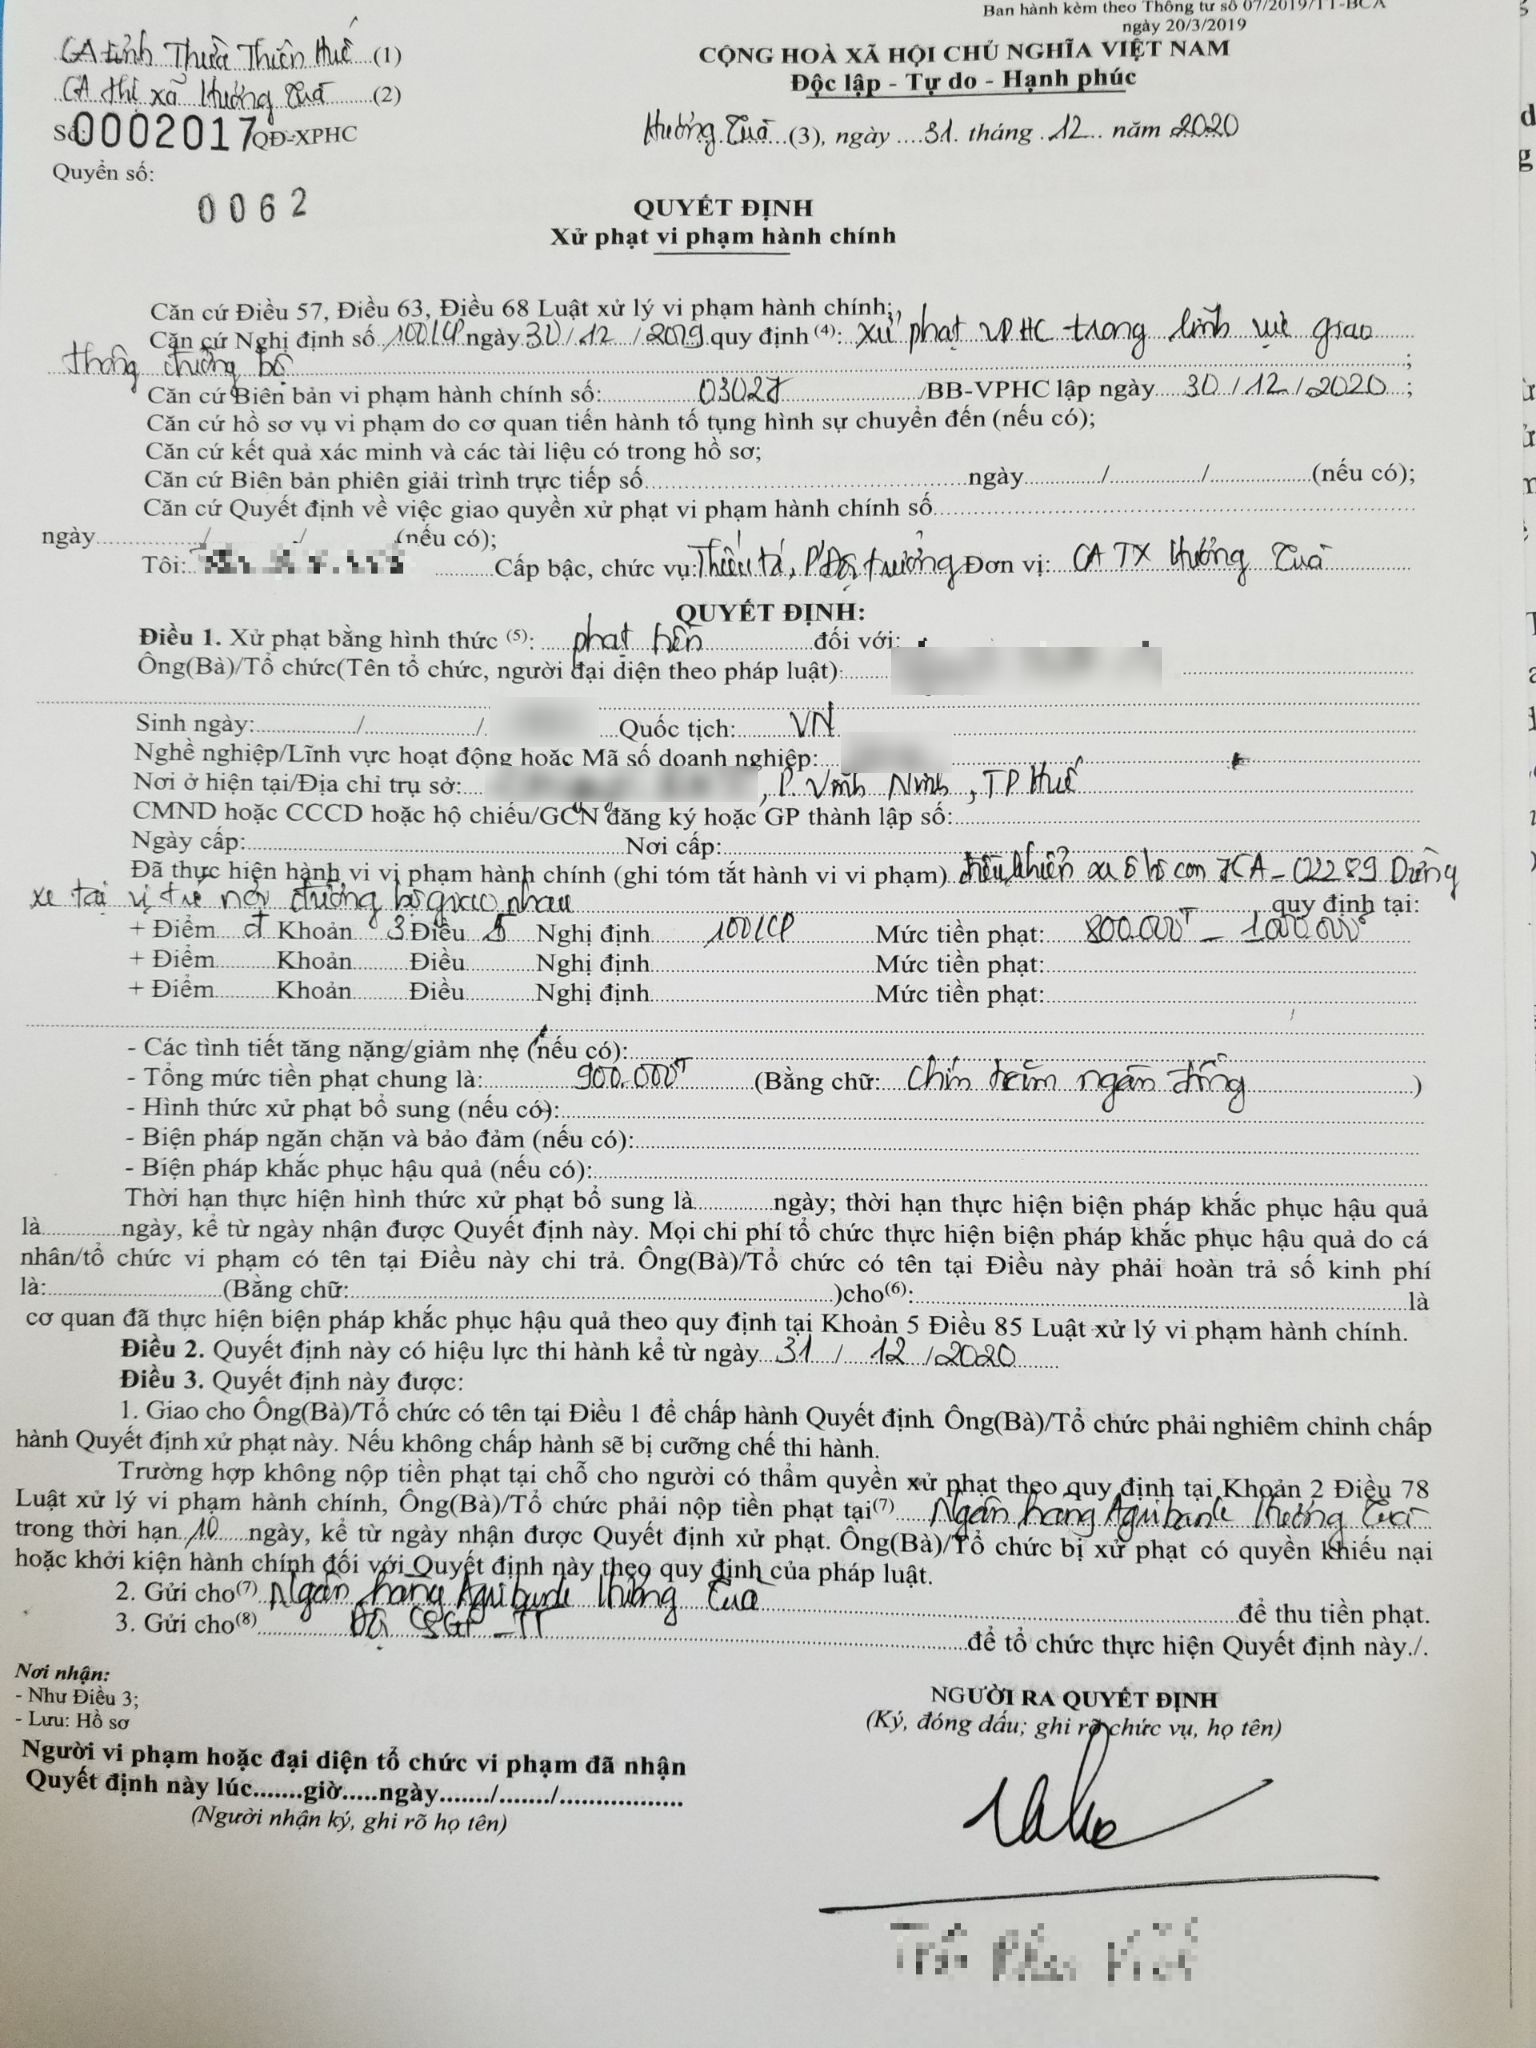 Ban hành kèm theo Thông tư số 07/2019/TT-BCA
ngày 20/3/2019
CA tỉnh Thừa Thiên Huế (1)
CA thị xã Hương Trà (2)
Số 0002017 QĐ-XPHC
Quyển số:
0062
CỘNG HOÀ XÃ HỘI CHỦ NGHĨA VIỆT NAM
Độc lập - Tự do - Hạnh phúc
Hương Trà (3), ngày 31 tháng 12 năm 2020
QUYẾT ĐỊNH
Xử phạt vi phạm hành chính
Căn cứ Điều 57, Điều 63, Điều 68 Luật xử lý vi phạm hành chính;
Căn cứ Nghị định số 100/CP ngày 30/12/2019 quy định (4): Xử phạt VPHC trong lĩnh vực giao
thông đường bộ;
Căn cứ Biên bản vi phạm hành chính số: 03027/BB-VPHC lập ngày 30/12/2020;
Căn cứ hồ sơ vụ vi phạm do cơ quan tiến hành tố tụng hình sự chuyển đến (nếu có);
Căn cứ kết quả xác minh và các tài liệu có trong hồ sơ;
Căn cứ Biên bản phiên giải trình trực tiếp số ngày / / (nếu có);
Căn cứ Quyết định về việc giao quyền xử phạt vi phạm hành chính số
ngày / / (nếu có);
Tôi: Cấp bậc, chức vụ: Thiếu tá, P.Đội trưởng Đơn vị: CA TX Hương Trà
QUYẾT ĐỊNH:
Điều 1. Xử phạt bằng hình thức (5): phạt tiền đối với:
Ông(Bà)/Tổ chức(Tên tổ chức, người đại diện theo pháp luật):
Sinh ngày: / / Quốc tịch: VN
Nghề nghiệp/Lĩnh vực hoạt động hoặc Mã số doanh nghiệp:
Nơi ở hiện tại/Địa chỉ trụ sở: , P. Vĩnh Ninh, TP Huế
CMND hoặc CCCD hoặc hộ chiếu/GCN đăng ký hoặc GP thành lập số:
Ngày cấp: Nơi cấp:
Đã thực hiện hành vi vi phạm hành chính (ghi tóm tắt hành vi vi phạm) điều khiển xe ô tô con 7CA-02289 Dừng
xe tại vị trí nơi đường bộ giao nhau quy định tại:
+ Điểm đ Khoản 3 Điều 5 Nghị định 100/CP Mức tiền phạt: 800.000đ - 1000.000đ
+ Điểm Khoản Điều Nghị định Mức tiền phạt:
+ Điểm Khoản Điều Nghị định Mức tiền phạt:
- Các tình tiết tăng nặng/giảm nhẹ (nếu có):
- Tổng mức tiền phạt chung là: 900.000đ (Bằng chữ: Chín trăm ngàn đồng )
- Hình thức xử phạt bổ sung (nếu có):
- Biện pháp ngăn chặn và bảo đảm (nếu có):
- Biện pháp khắc phục hậu quả (nếu có):
Thời hạn thực hiện hình thức xử phạt bổ sung là ngày; thời hạn thực hiện biện pháp khắc phục hậu quả
là ngày, kể từ ngày nhận được Quyết định này. Mọi chi phí tổ chức thực hiện biện pháp khắc phục hậu quả do cá
nhân/tổ chức vi phạm có tên tại Điều này chi trả. Ông(Bà)/Tổ chức có tên tại Điều này phải hoàn trả số kinh phí
là: (Bằng chữ: )cho(6): là
cơ quan đã thực hiện biện pháp khắc phục hậu quả theo quy định tại Khoản 5 Điều 85 Luật xử lý vi phạm hành chính.
Điều 2. Quyết định này có hiệu lực thi hành kể từ ngày 31/12/2020
Điều 3. Quyết định này được:
1. Giao cho Ông(Bà)/Tổ chức có tên tại Điều 1 để chấp hành Quyết định Ông(Bà)/Tổ chức phải nghiêm chỉnh chấp
hành Quyết định xử phạt này. Nếu không chấp hành sẽ bị cưỡng chế thi hành.
Trường hợp không nộp tiền phạt tại chỗ cho người có thẩm quyền xử phạt theo quy định tại Khoản 2 Điều 78
Luật xử lý vi phạm hành chính, Ông(Bà)/Tổ chức phải nộp tiền phạt tại(7) Ngân hàng Agribank Hương Trà
trong thời hạn 10 ngày, kể từ ngày nhận được Quyết định xử phạt. Ông(Bà)/Tổ chức bị xử phạt có quyền khiếu nại
hoặc khởi kiện hành chính đối với Quyết định này theo quy định của pháp luật.
2. Gửi cho(7) Ngân hàng Agribank Hương Trà để thu tiền phạt.
3. Gửi cho(8) Đội CSGT-TT để tổ chức thực hiện Quyết định này./.
Nơi nhận:
- Như Điều 3;
- Lưu: Hồ sơ
Người vi phạm hoặc đại diện tổ chức vi phạm đã nhận
Quyết định này lúc.......giờ.....ngày......./......./.................
(Người nhận ký, ghi rõ họ tên)
NGƯỜI RA QUYẾT ĐỊNH
(Ký, đóng dấu; ghi rõ chức vụ, họ tên)